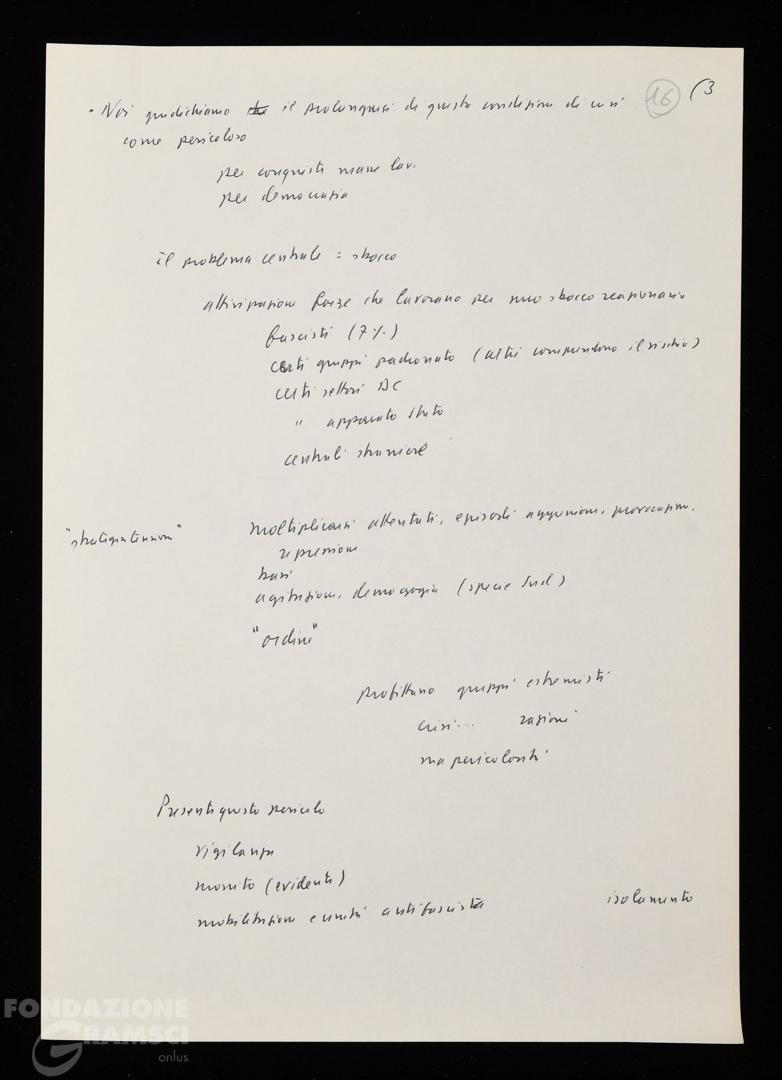 16 (3
• Noi giudichiamo il prolungarsi di questa condizione di crisi
come pericoloso
per conquiste masse lav.
per democrazia
il problema centrale = sbocco
attivizzazione forze che lavorano per uno sbocco reazionario
fascisti (7%)
certi gruppi padronato (altri comprendono il rischio)
certi settori DC
" apparato Stato
centrali straniere
"strategia tensione" moltiplicarsi attentati, episodi aggression. provocazion.
repressione
basi
agitazione, demagogia (specie Sud)
"ordine"
profittano gruppi estremisti
crisi... ragioni
ma pericolosità
Presenti questo pericolo
vigilanza
monito (evidente)
mobilitazione e unità antifascista isolamento
FONDAZIONE
GRAMSCI
onlus